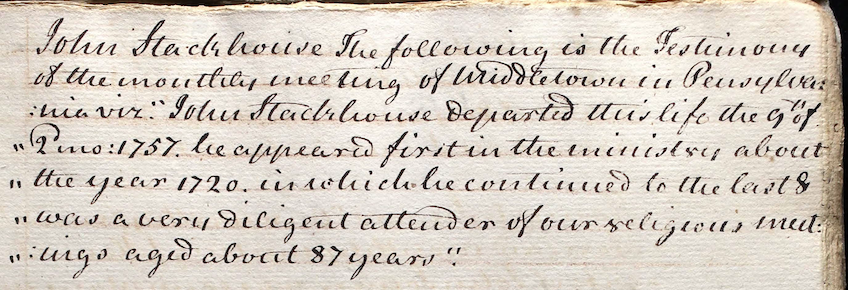 John Stackhouse The following is the Testimony
of the monthly meeting of Middletown in Pensylva:
:nia viz." John Stackhouse departed this life the 9" of
" 2 mo: 1757. he appeared first in the ministry about
" the year 1720. in which he continued to the last &
" was a very diligent attender of our religious meet:
" :ings aged about 87 years".